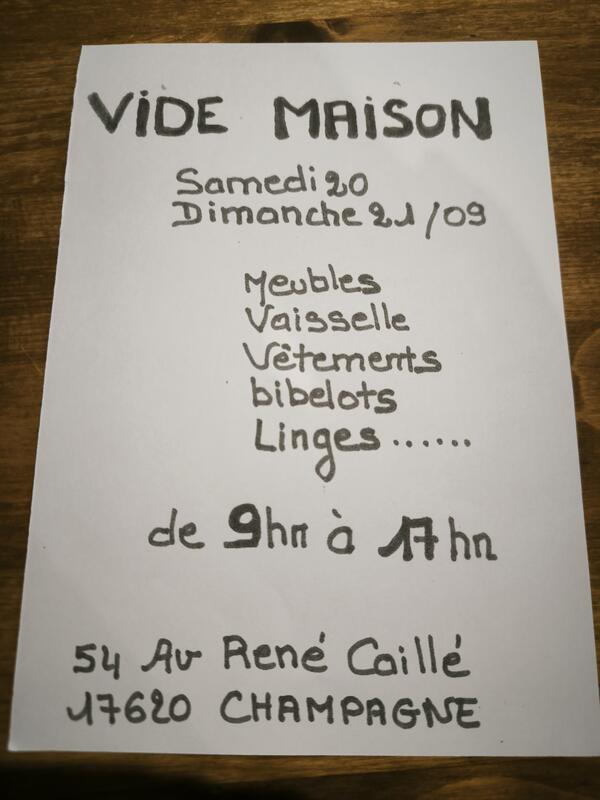 VIDE MAISON
Samedi 20
Dimanche 21/09
Meubles
Vaisselle
Vêtements
bibelots
Linges......
de 9hr à 17hr
54 Av René Caillé
17620 CHAMPAGNE